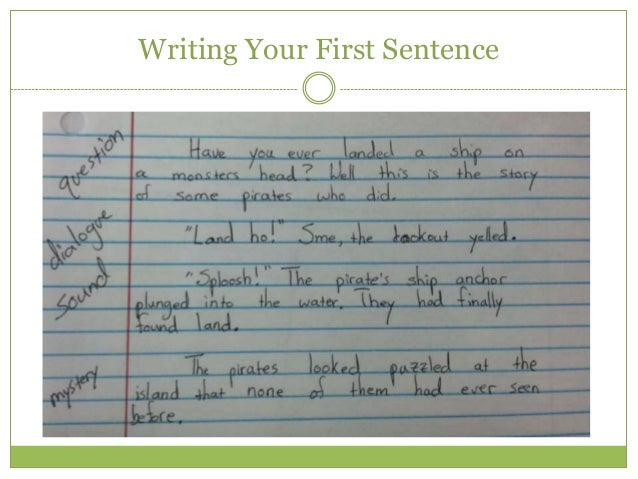 Writing Your First Sentence
question
Have you ever landed a ship on
a monsters head? Well this is the story
of some pirates who did.
dialogue
"Land ho!" Sme, the lookout yelled.
sound
"Sploosh!" The pirate's ship anchor
plunged into the water. They had finally
found land.
mystery
The pirates looked puzzled at the
island that none of them had ever seen
before.